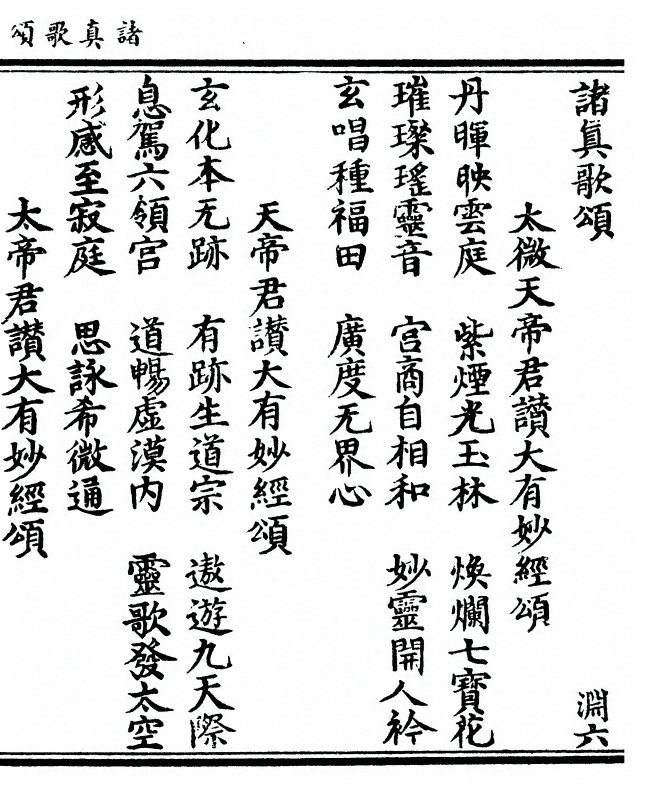 諸真歌頌
諸真歌頌 淵六
太微天帝君讃大有妙經頌
丹暉映雲庭 紫煙光玉林 煥爛七寶花
璀璨瑤靈音 宮商自相和 妙靈開人衿
玄唱種福田 廣度无界心
天帝君讃大有妙經頌
玄化本无跡 有跡生道宗 遨遊九天際
息駕六領宮 道暢虛漠内 靈歌發太空
形感至寂庭 思詠希微通
太帝君讃大有妙經頌